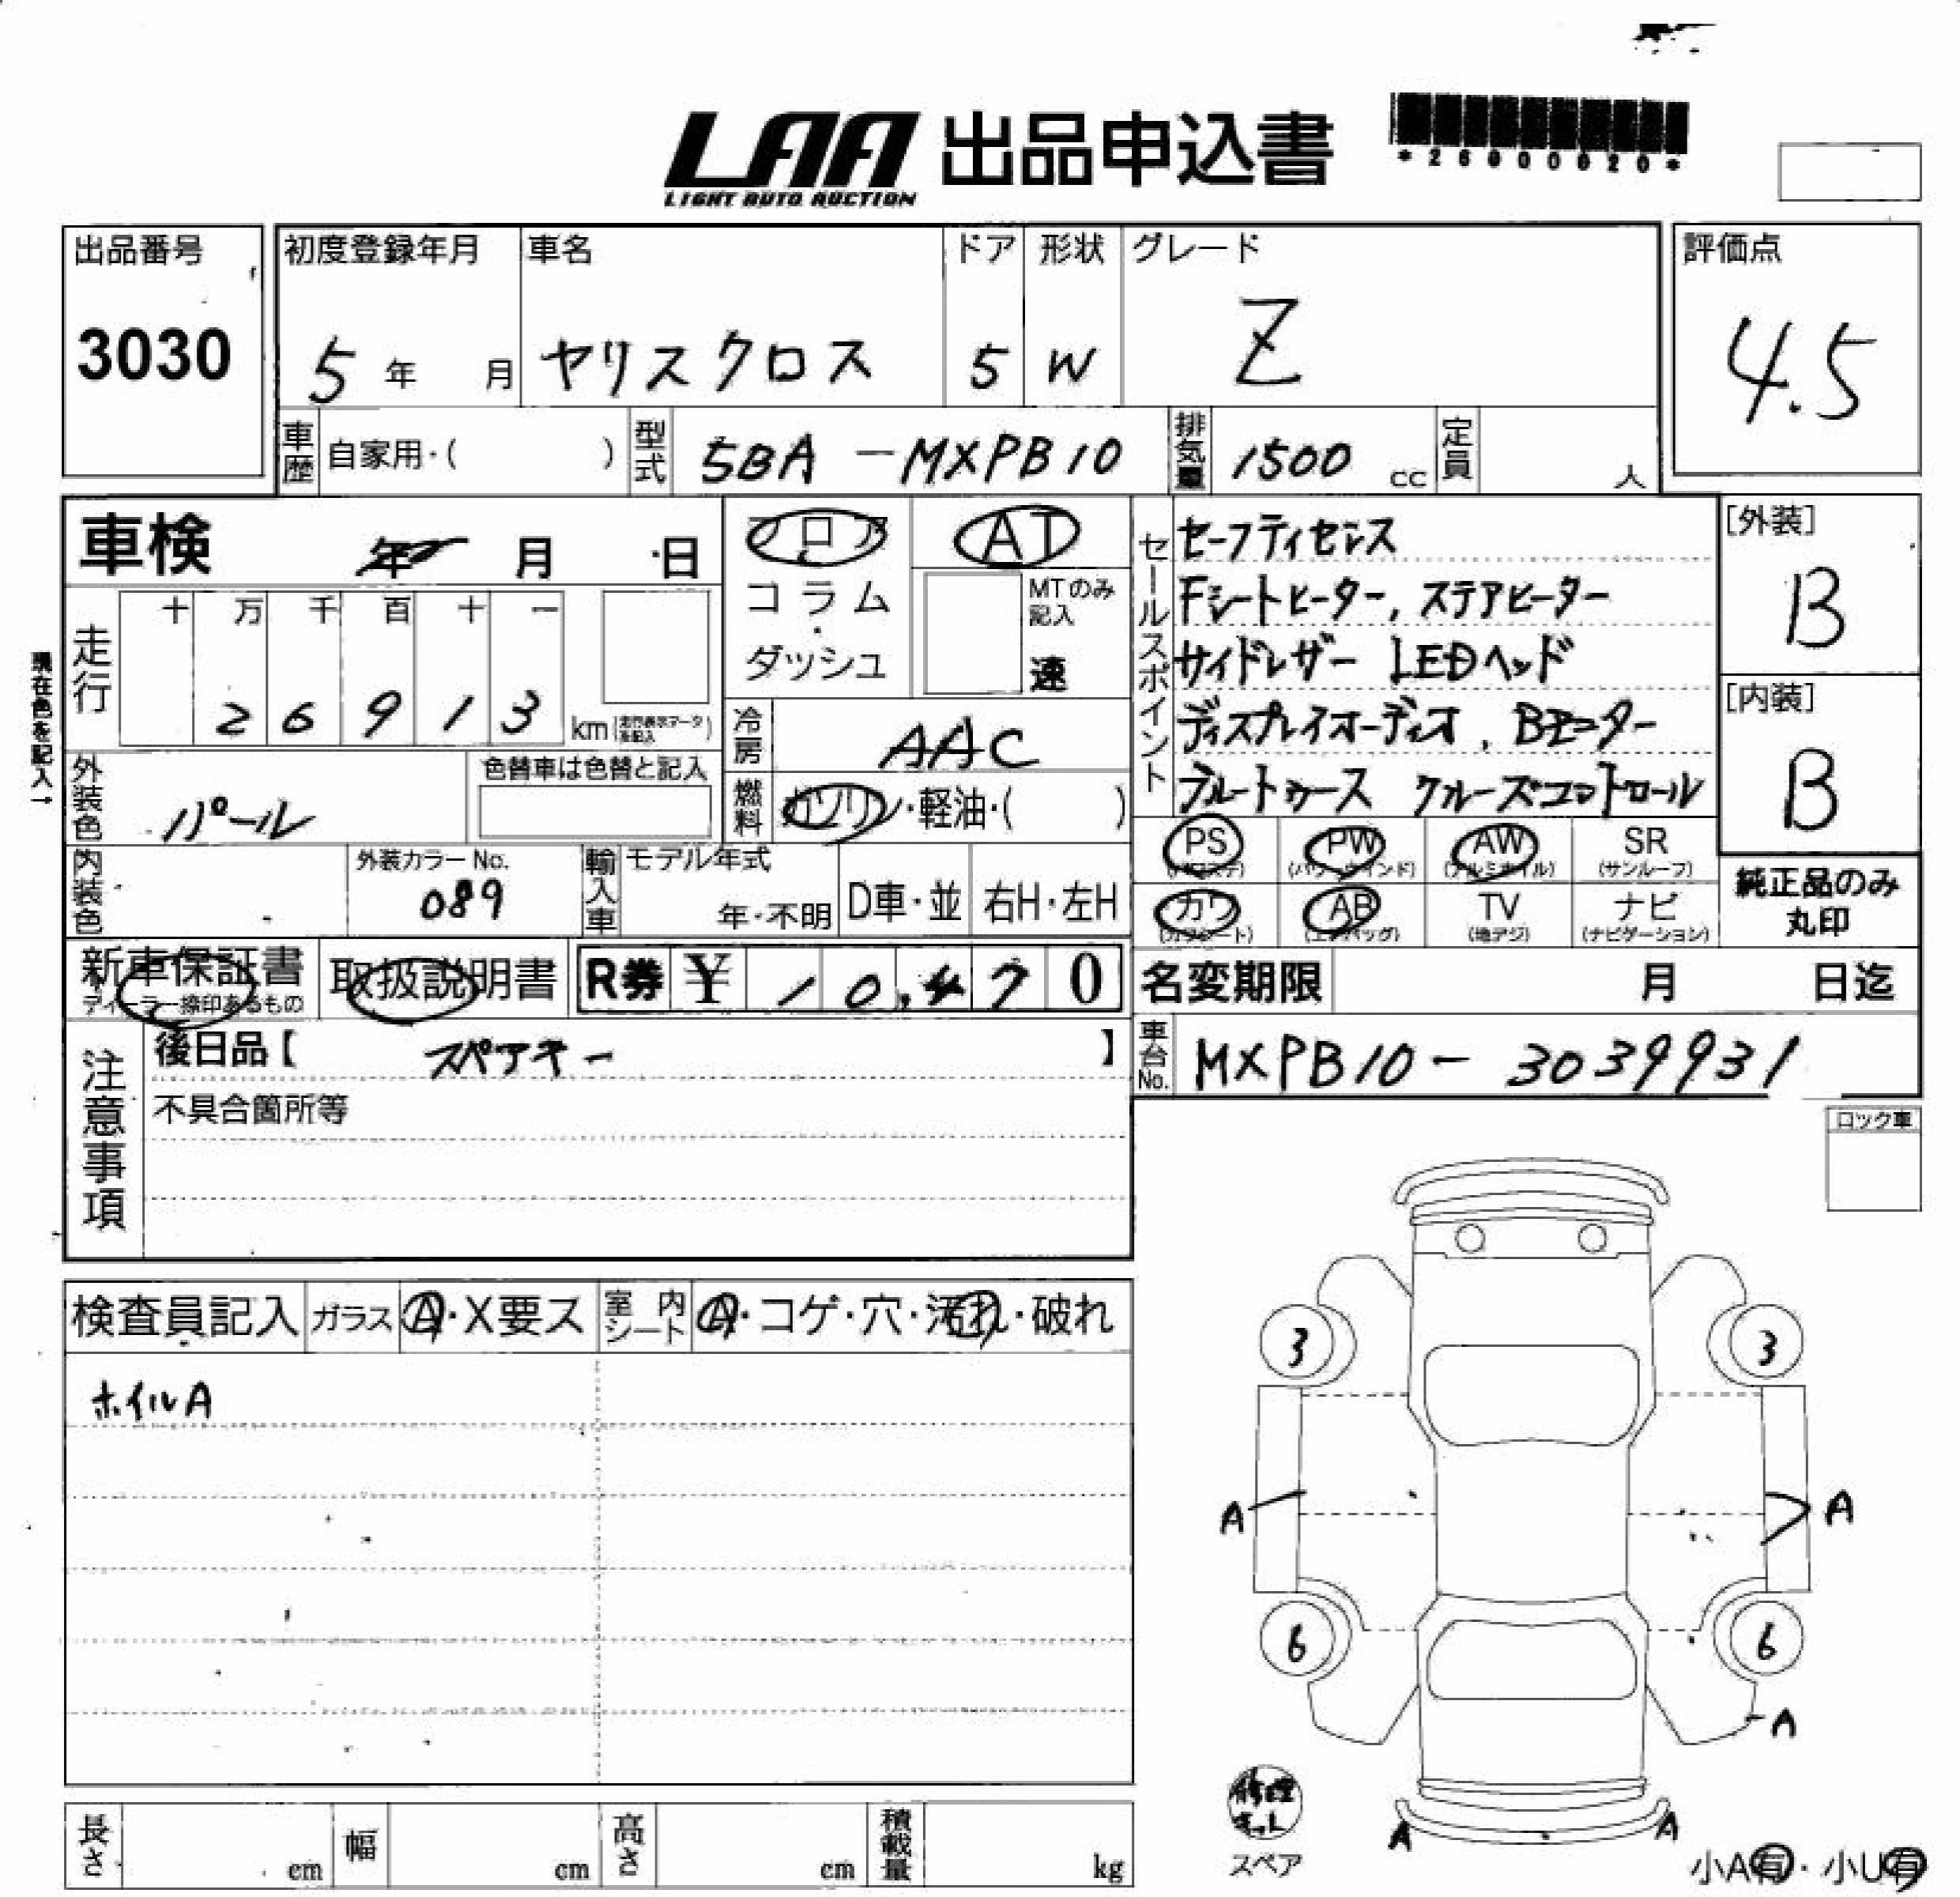 LAA 出品申込書
LIGHT AUTO AUCTION
*26000020*
出品番号
3030
初度登録年月 車名 ドア 形状 グレード
5年 月 ヤリスクロス 5 W Z
評価点
4.5
車歴 自家用・( ) 型式 5BA-MXPB10 排気量 1500 cc 定員 人
車検 年 月 日
フロア AT
コラム・ダッシュ
MTのみ記入
速
現在色を記入→
走行 十 万 千 百 十 一
2 6 9 1 3 km
冷房 AAC
燃料 ガソリン・軽油・( )
外装色 パール
色替車は色替と記入
セールスポイント
セーフティセンス
Fシートヒーター, ステアヒーター
サイドレザー LEDヘッド
ディスプレイオーディオ, Bモニター
ブルートゥース クルーズコントロール
[外装]
B
[内装]
B
内装色
外装カラーNo.
089
輸入車 モデル年式
年・不明 D車・並 右H・左H
PS PW AW SR
(パワステ) (パワーウインド) (アルミホイル) (サンルーフ)
カワ AB TV ナビ
(カワシート) (エアバッグ) (地デジ) (ナビゲーション)
純正品のみ
丸印
新車保証書
ディーラー捺印あるもの
取扱説明書
R券 ¥ 10,470
名変期限 月 日迄
車台No. MXPB10-3039931
注意事項
後日品【 スペアキー 】
不具合箇所等
ロック車
検査員記入 ガラス A・X要ス 室内シート A・コゲ・穴・汚れ・破れ
ホイルA
3 3
A A
6 6
A
A A
修理キット
スペア
小A有・小U有
長さ cm 幅 cm 高さ cm 積載量 kg